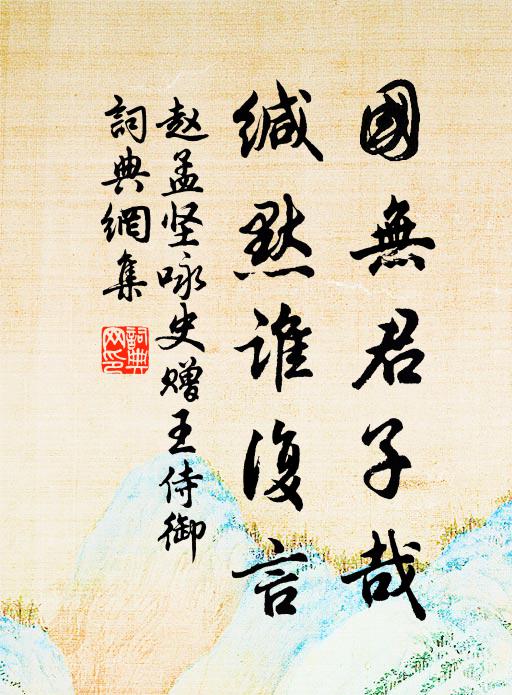 國無君子哉
缄默誰復言
赵孟坚咏史赠王侍御
詞典網集
詞典網印